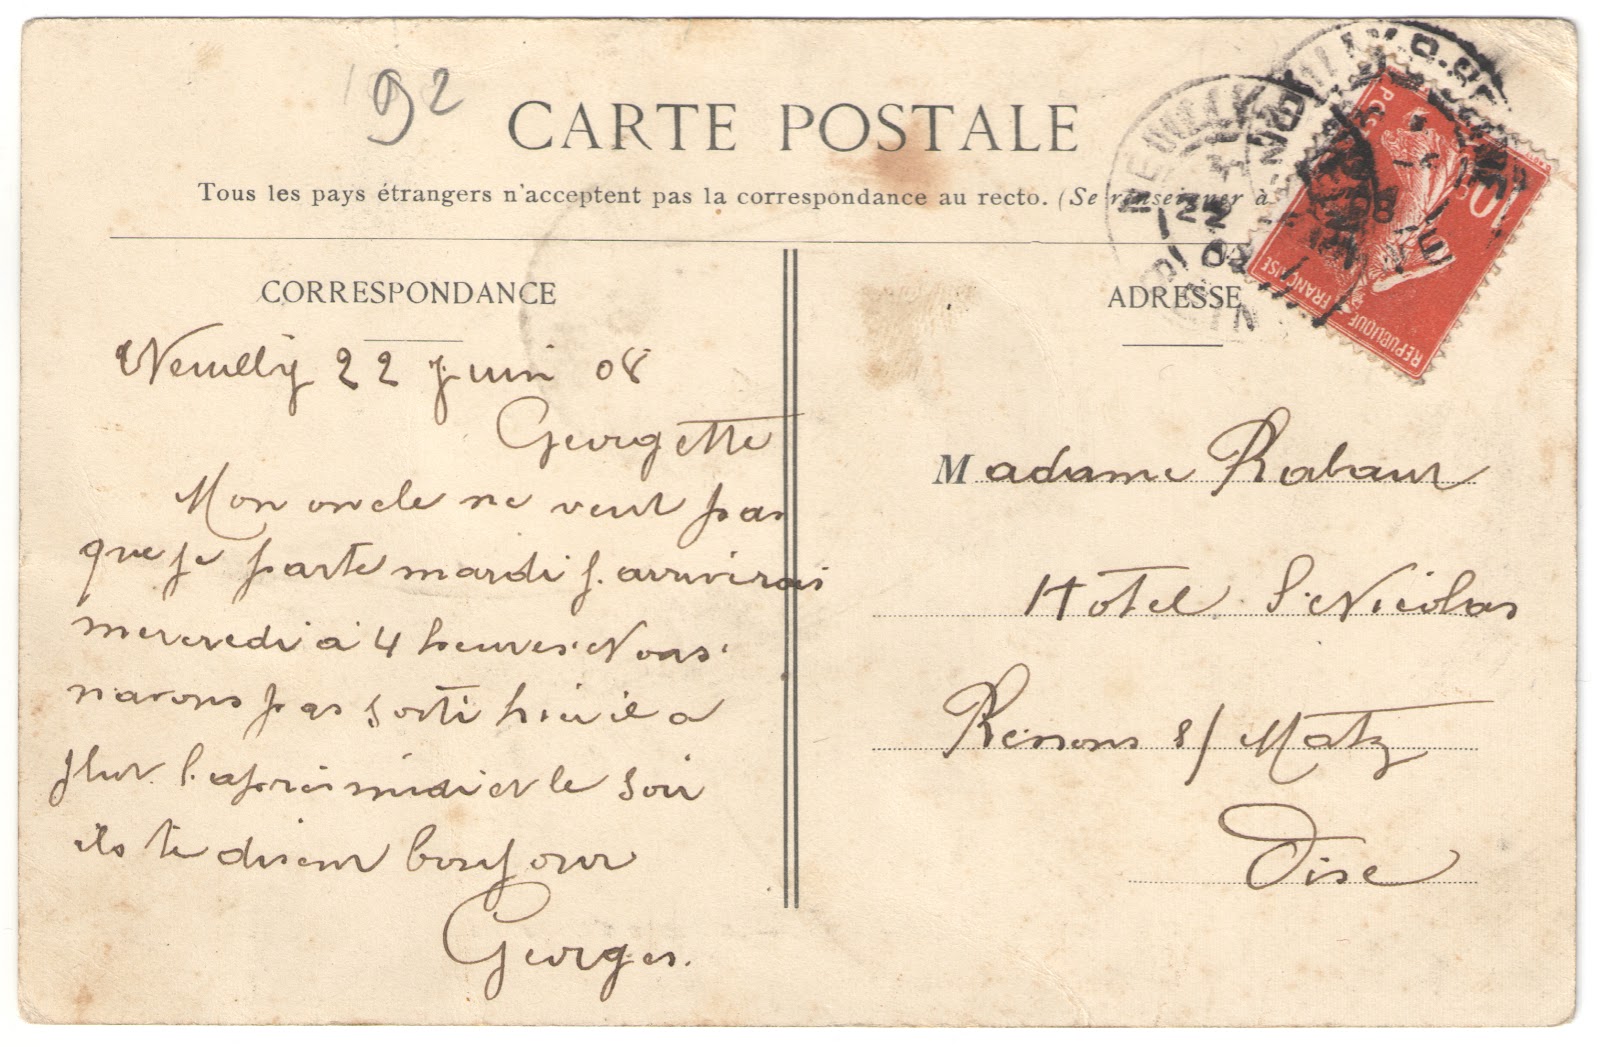 92
CARTE POSTALE
Tous les pays étrangers n'acceptent pas la correspondance au recto. (Se renseigner à
CORRESPONDANCE
Neuilly 22 Juin 08
Georgette
Mon oncle ne veut pas
que je parte mardi j. arriverais
mercredi à 4 heures. Nous
n'avons pas sorti hier il a
plut l. après midi et le soir
ils te disent bonjour
Georges.
ADRESSE
Madame Rabaur
Hôtel St Nicolas
Ressons s/ Matz
Oise
10
POSTES
REPUBLIQUE FRANÇAISE
NEUILLY